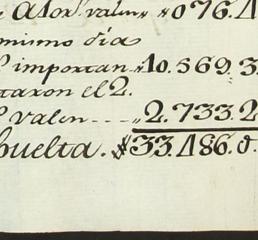 e Alor.^s valen „ *076.4
mismo dia
importan „ 10.569.3
taxon el 2.
valen - - - „ 2.733.2
buelta. # 33.486.